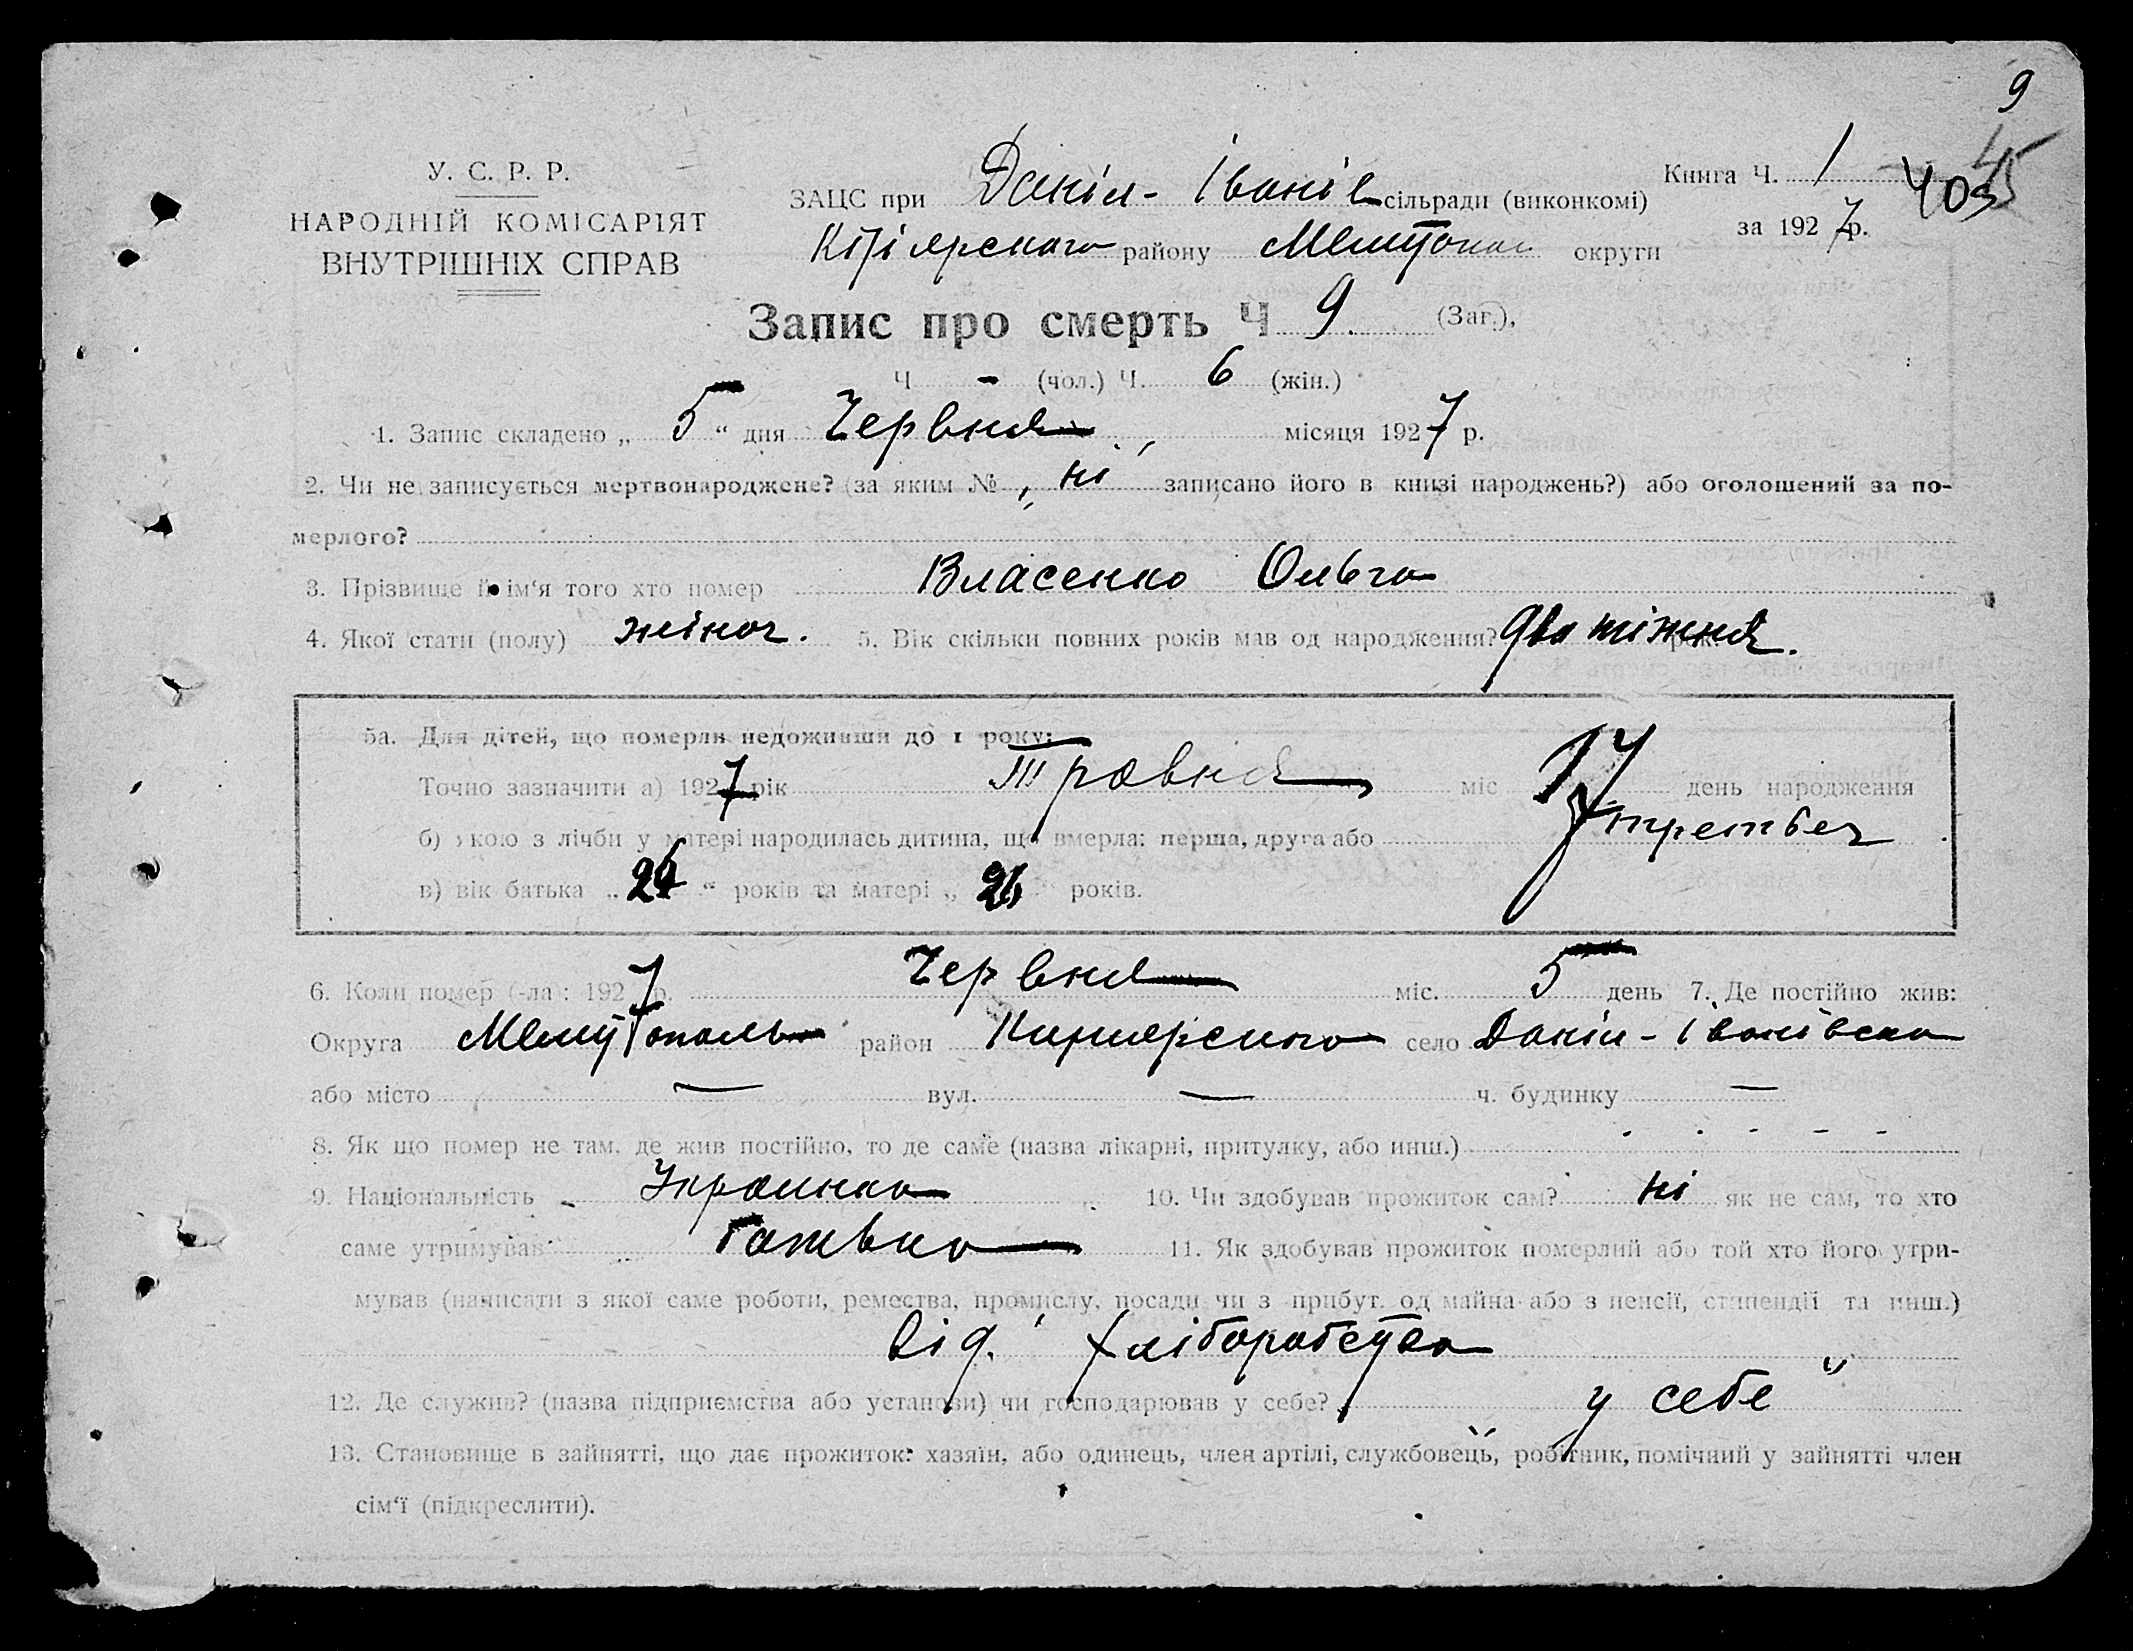 9
У. С. Р. Р.
НАРОДНІЙ КОМІСАРІЯТ
ВНУТРІШНІХ СПРАВ
ЗАЦС при Даніл- Іванів сільради (виконкомі)
району Мелітопол округи
Книга Ч. 1
за 1927 р.
Запис про смерть Ч 9. (Заг.),
Ч - (чол.) Ч. 6 (жін.)
1. Запис складено „ 5 “ дня Червня місяця 1927 р.
2. Чи не записується мертвонароджене? (за яким № ні записано його в книзі народжень?) або оголошений за по-
мерлого?
3. Прізвище й ім‘я того хто помер Власенко Ольга
4. Якої стати (полу) жіноч. 5. Вік скільки повних років мав од народження? два тіжня.
5а. Для дітей, що померли недоживши до 1 року:
Точно зазначити а) 1927 рік Травня міс 17 день народження
б) якою з лічби у матері народилась дитина, що вмерла: перша, друга або
в) вік батька „ “ років та матері „ “ років.
6. Коли помер (-ла): 1927 р. Червня міс. 5 день 7. Де постійно жив:
Округа район село Даніл - Іванівска
або місто — вул. — ч. будинку —
8. Як що помер не там, де жив постійно, то де саме (назва лікарні, притулку, або инш.) - - - - -
9. Національність Украинка 10. Чи здобував прожиток сам? ні як не сам, то хто
саме утримував батько 11. Як здобував прожиток померлий або той хто його утри-
мував (написати з якої саме роботи, ремества, промислу, посади чи з прибут. од майна або з пенсії, стипендії та инш.)
від хліборобства
12. Де служив? (назва підприємства або установи) чи господарював у себе? у себе
13. Становище в зайнятті, що дає прожиток: хазяїн, або одинець, член артілі, службовець, робітник, помічний у зайнятті член
сім‘ї (підкреслити).